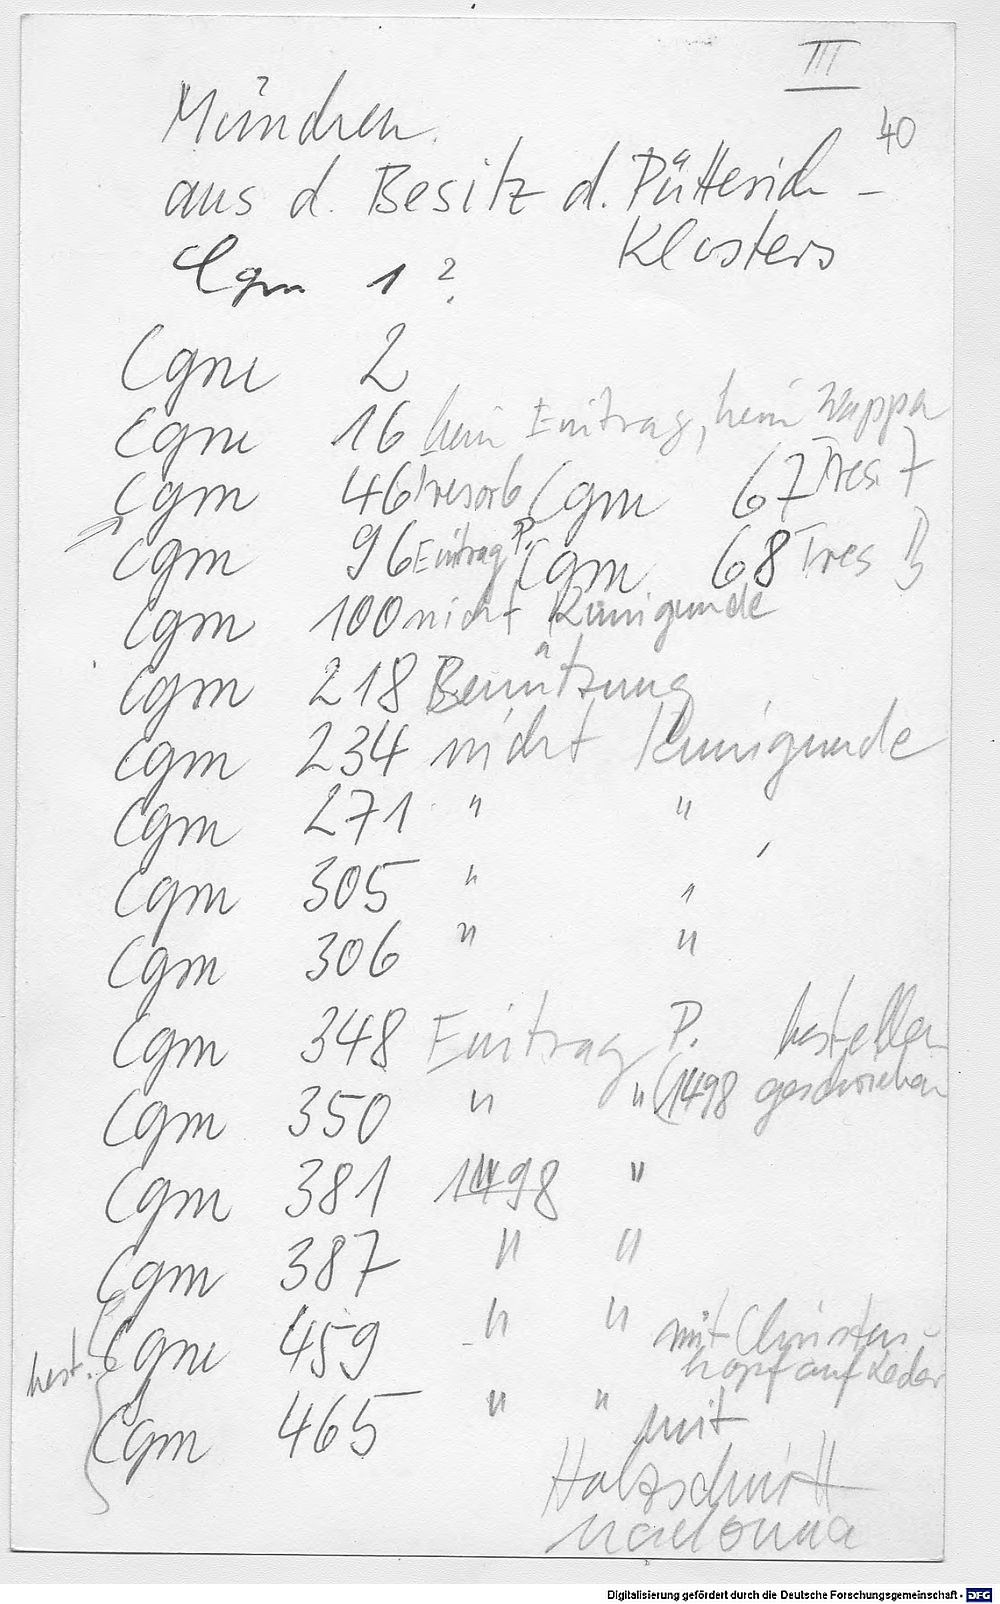 III
40
München.
aus d. Besitz d. Pütterich-
Klosters
Cgm 1?
Cgm 2
Cgm 16 kein Eintrag, kein Wappen
Cgm 46 Tresor 6 Cgm 67 Tres. 7
Cgm 96 Eintrag P. Cgm 68 Tres
Cgm 100 nicht Kunigunde
Cgm 218 Benützung
Cgm 234 nicht Kunigunde
Cgm 271 " "
Cgm 305 " "
Cgm 306 " "
Cgm 348 Eintrag P. bestellen
Cgm 350 " " (1498 geschrieben
Cgm 381 1498 "
Cgm 387 " "
Cgm 459 " " mit Christus-
kopf auf Leder
best.
Cgm 465 " " mit
Holzschnitt
Madonna
Digitalisierung gefördert durch die Deutsche Forschungsgemeinschaft - DFG